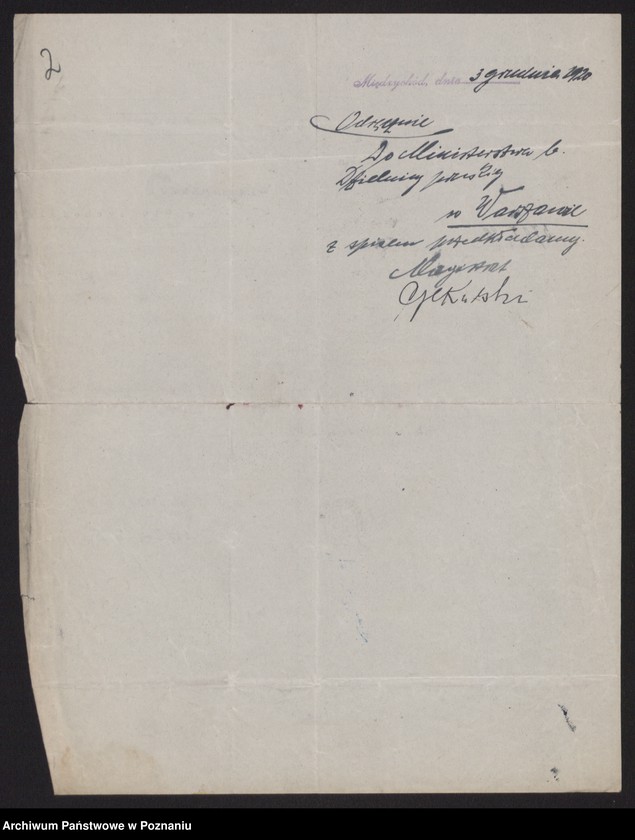 2
Międzychód, dnia 3 grudnia 1920
Odręcznie
Do Ministerstwa b.
Dzielnicy pruskiej
w Warszawie
z spisem przedkładamy.
Magistrat
Archiwum Państwowe w Poznaniu